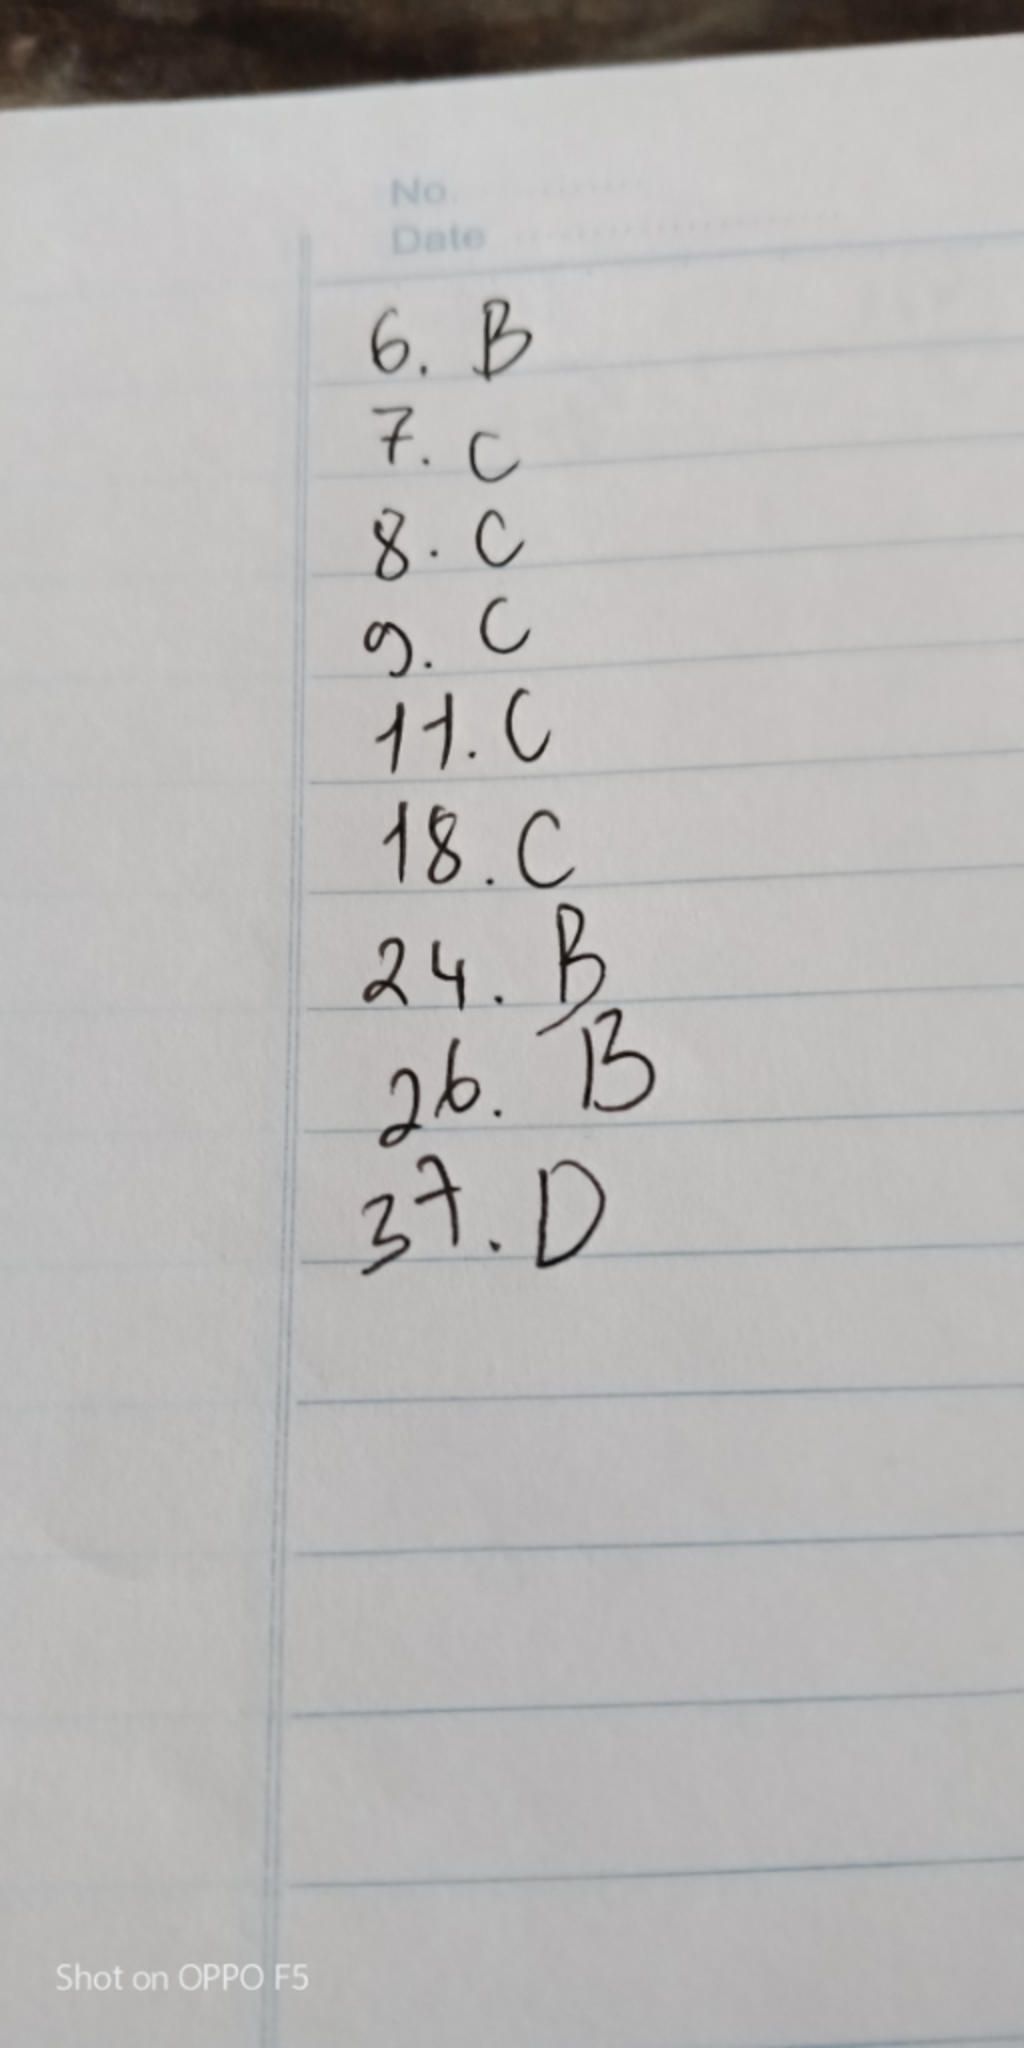 No.
Date
6. B
7. C
8. C
9. C
11. C
18. C
24. B
26. B
37. D
Shot on OPPO F5